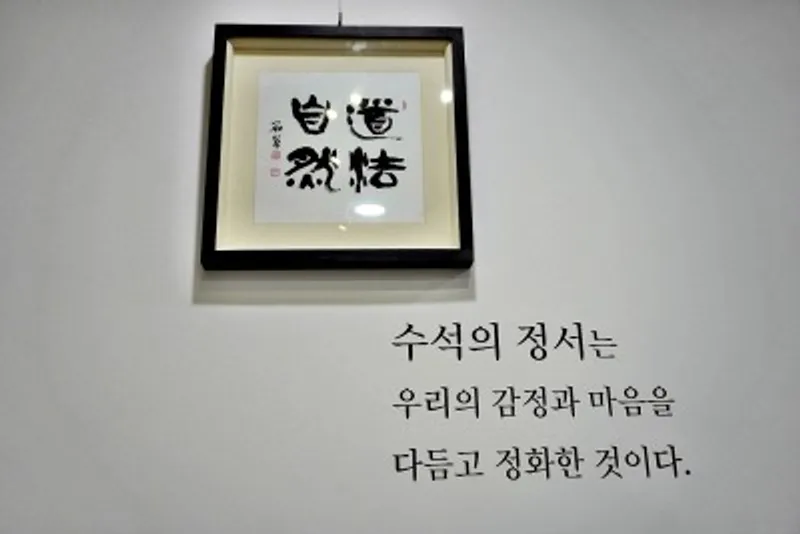 道法
自然
수석의 정서는
우리의 감정과 마음을
다듬고 정화한 것이다.